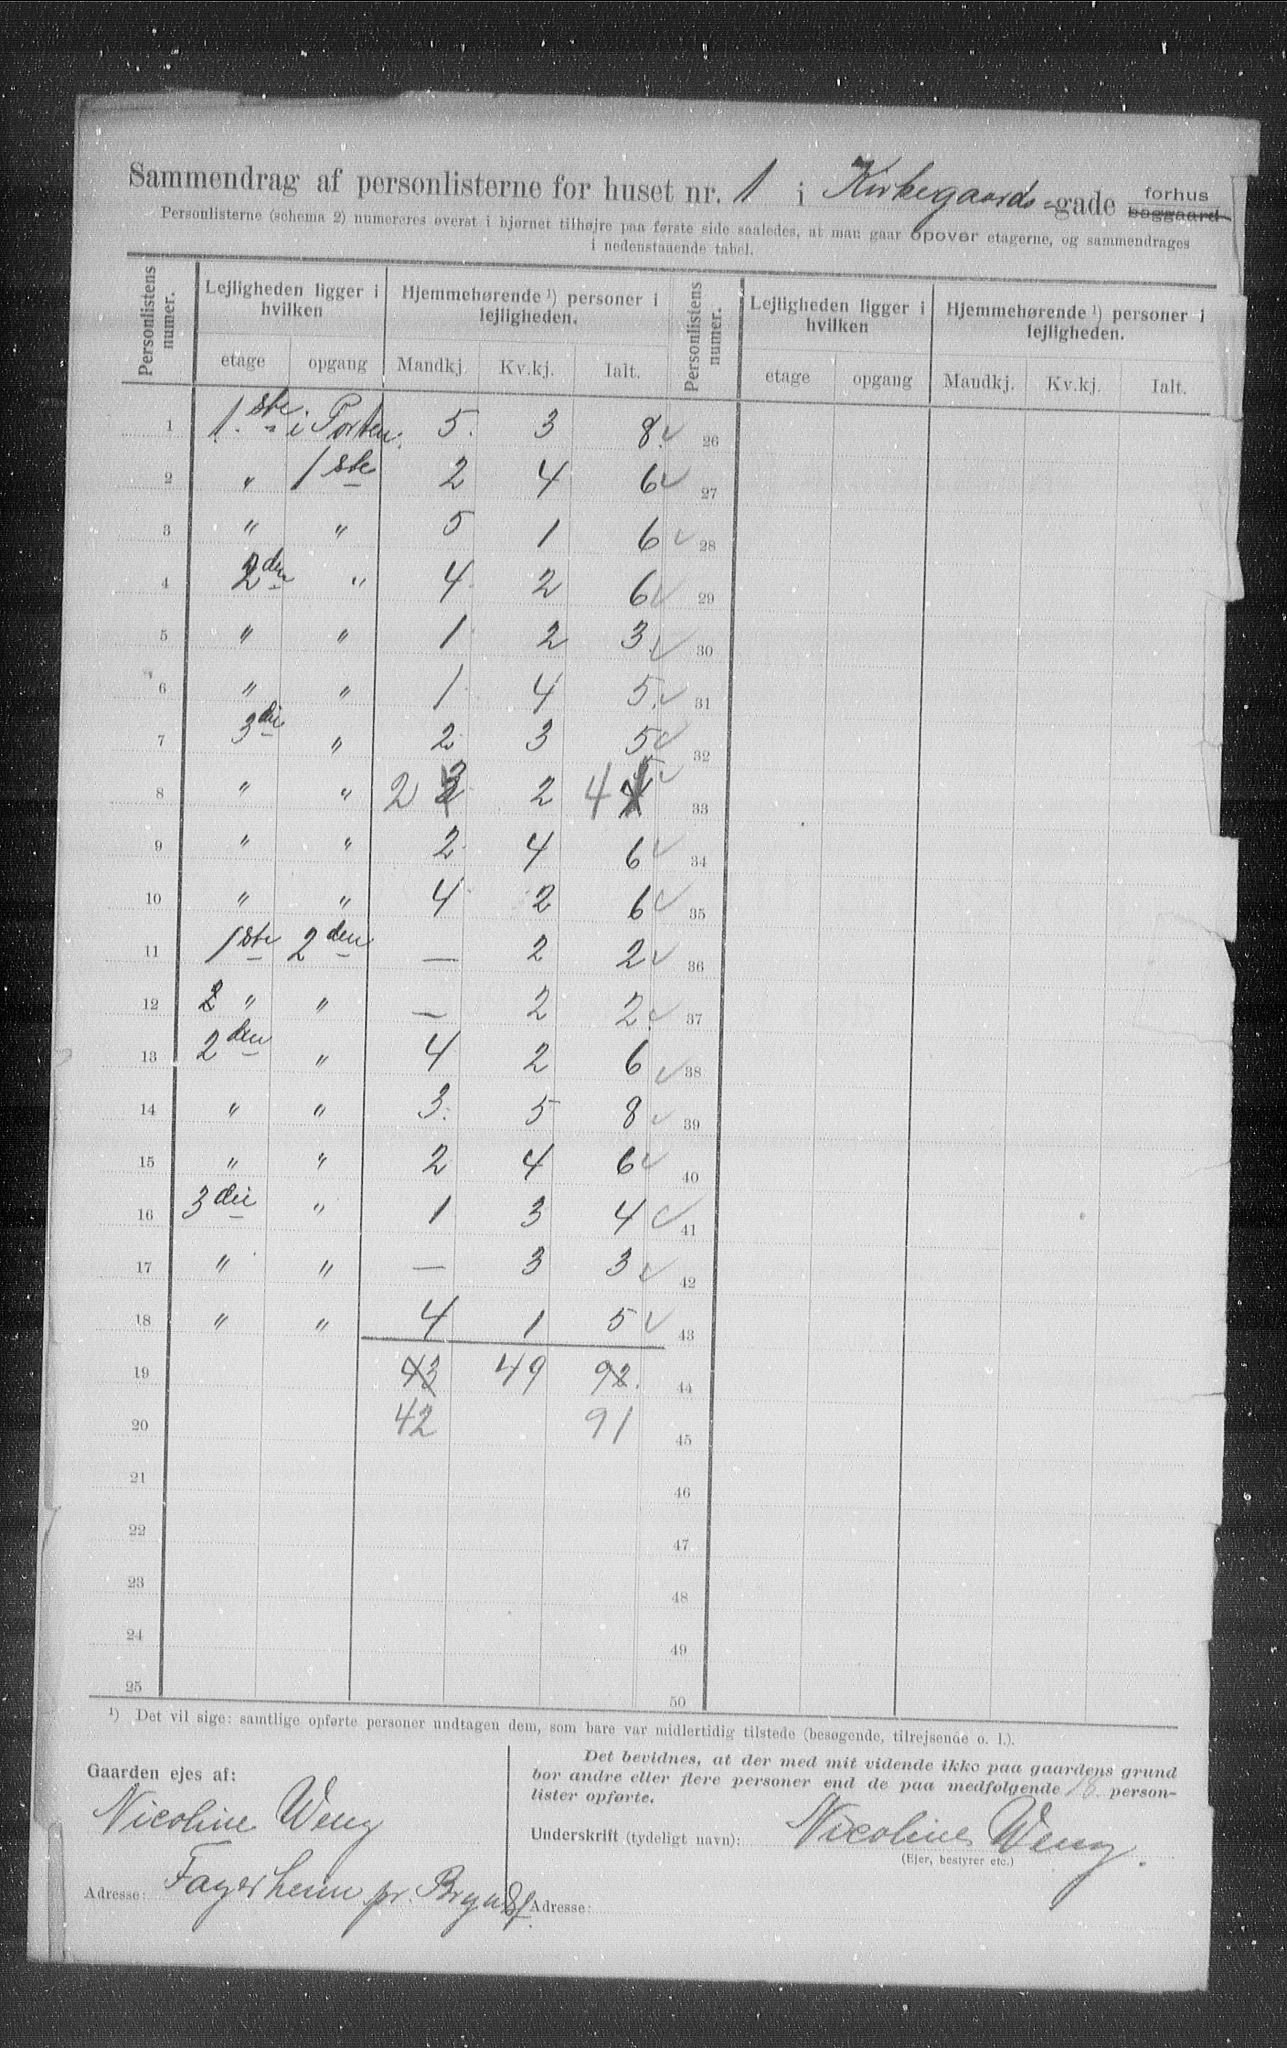 Sammendrag af personlisterne for huset nr. 1 i Kirkegaards-gade forhus baggaard
Personlisterne (schema 2) numereres øverst i hjørnet tilhøjre paa første side saaledes, at man gaar opover etagerne, og sammendrages
i nedenstaaende tabel.
Personlistens numer. Lejligheden ligger i hvilken Hjemmehørende ¹) personer i lejligheden. Personlistens numer. Lejligheden ligger i hvilken Hjemmehørende ¹) personer i lejligheden.
etage opgang Mandkj. Kv.kj. Ialt. etage opgang Mandkj. Kv.kj. Ialt.
1 1.ste i Porten. 5. 3 8. ✓ 26
2 " 1ste 2 4 6 ✓ 27
3 " " 5 1 6 ✓ 28
4 2den " 4 2 6 ✓ 29
5 " " 1 2 3. ✓ 30
6 " " 1 4 5. ✓ 31
7 3die " 2 3 5 ✓ 32
8 " " 2 3 2 4 5 ✓ 33
9 " " 2 4 6 ✓ 34
10 " " 4 2 6 ✓ 35
11 1ste 2den — 2 2 ✓ 36
12 " " — 2 2. ✓ 37
13 2den " 4 2 6 ✓ 38
14 " " 3. 5 8 ✓ 39
15 " " 2 4 6 ✓ 40
16 3die " 1 3 4 ✓ 41
17 " " — 3 3 ✓ 42
18 " " 4 1 5 ✓ 43
19 43 49 92. 44
20 42 91 45
21 46
22 47
23 48
24 49
25 50
¹) Det vil sige: samtlige opførte personer undtagen dem, som bare var midlertidig tilstede (besøgende, tilrejsende o. l.).
Gaarden ejes af:
Nicoline Weng
Adresse: Fagerheim pr. Bryn St.
Det bevidnes, at der med mit vidende ikke paa gaardens grund
bor andre eller flere personer end de paa medfølgende 18 person-
lister opførte.
Underskrift (tydeligt navn): Nicoline Weng.
(Ejer, bestyrer etc.)
Adresse: